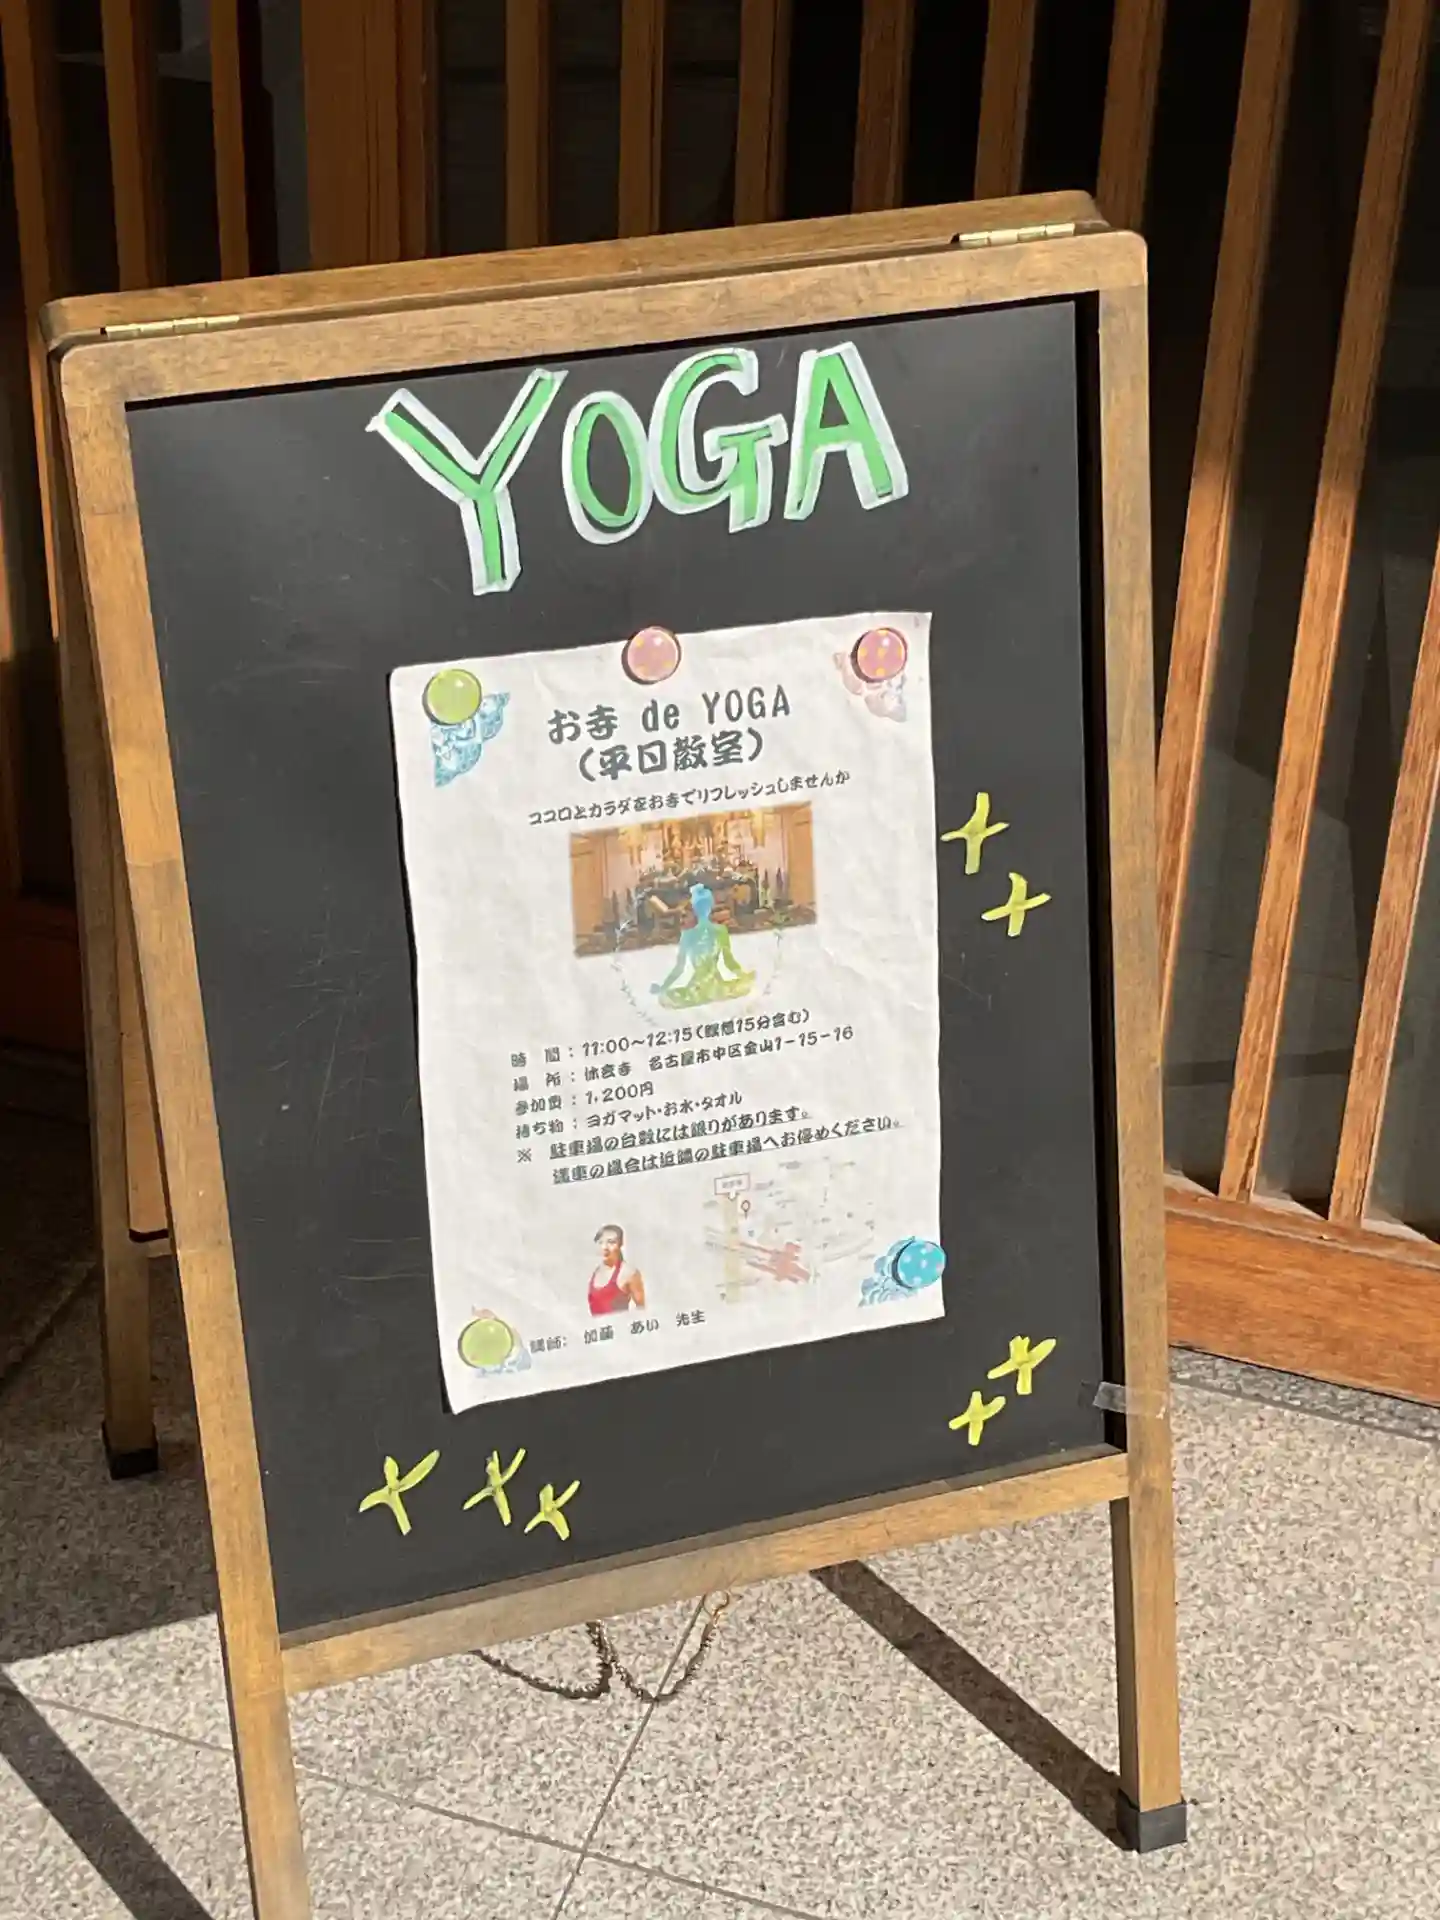 YOGA
お寺 de YOGA
（平日教室）
ココロとカラダをお寺でリフレッシュしませんか
時　間：11:00～12:15（瞑想15分含む）
場　所：休玄寺　名古屋市中区金山1－15－16
参加費：1,200円
持ち物：ヨガマット・お水・タオル
※　駐車場の台数には限りがあります。
満車の場合は近隣の駐車場へお停めください。
講師：　加藤　あい　先生